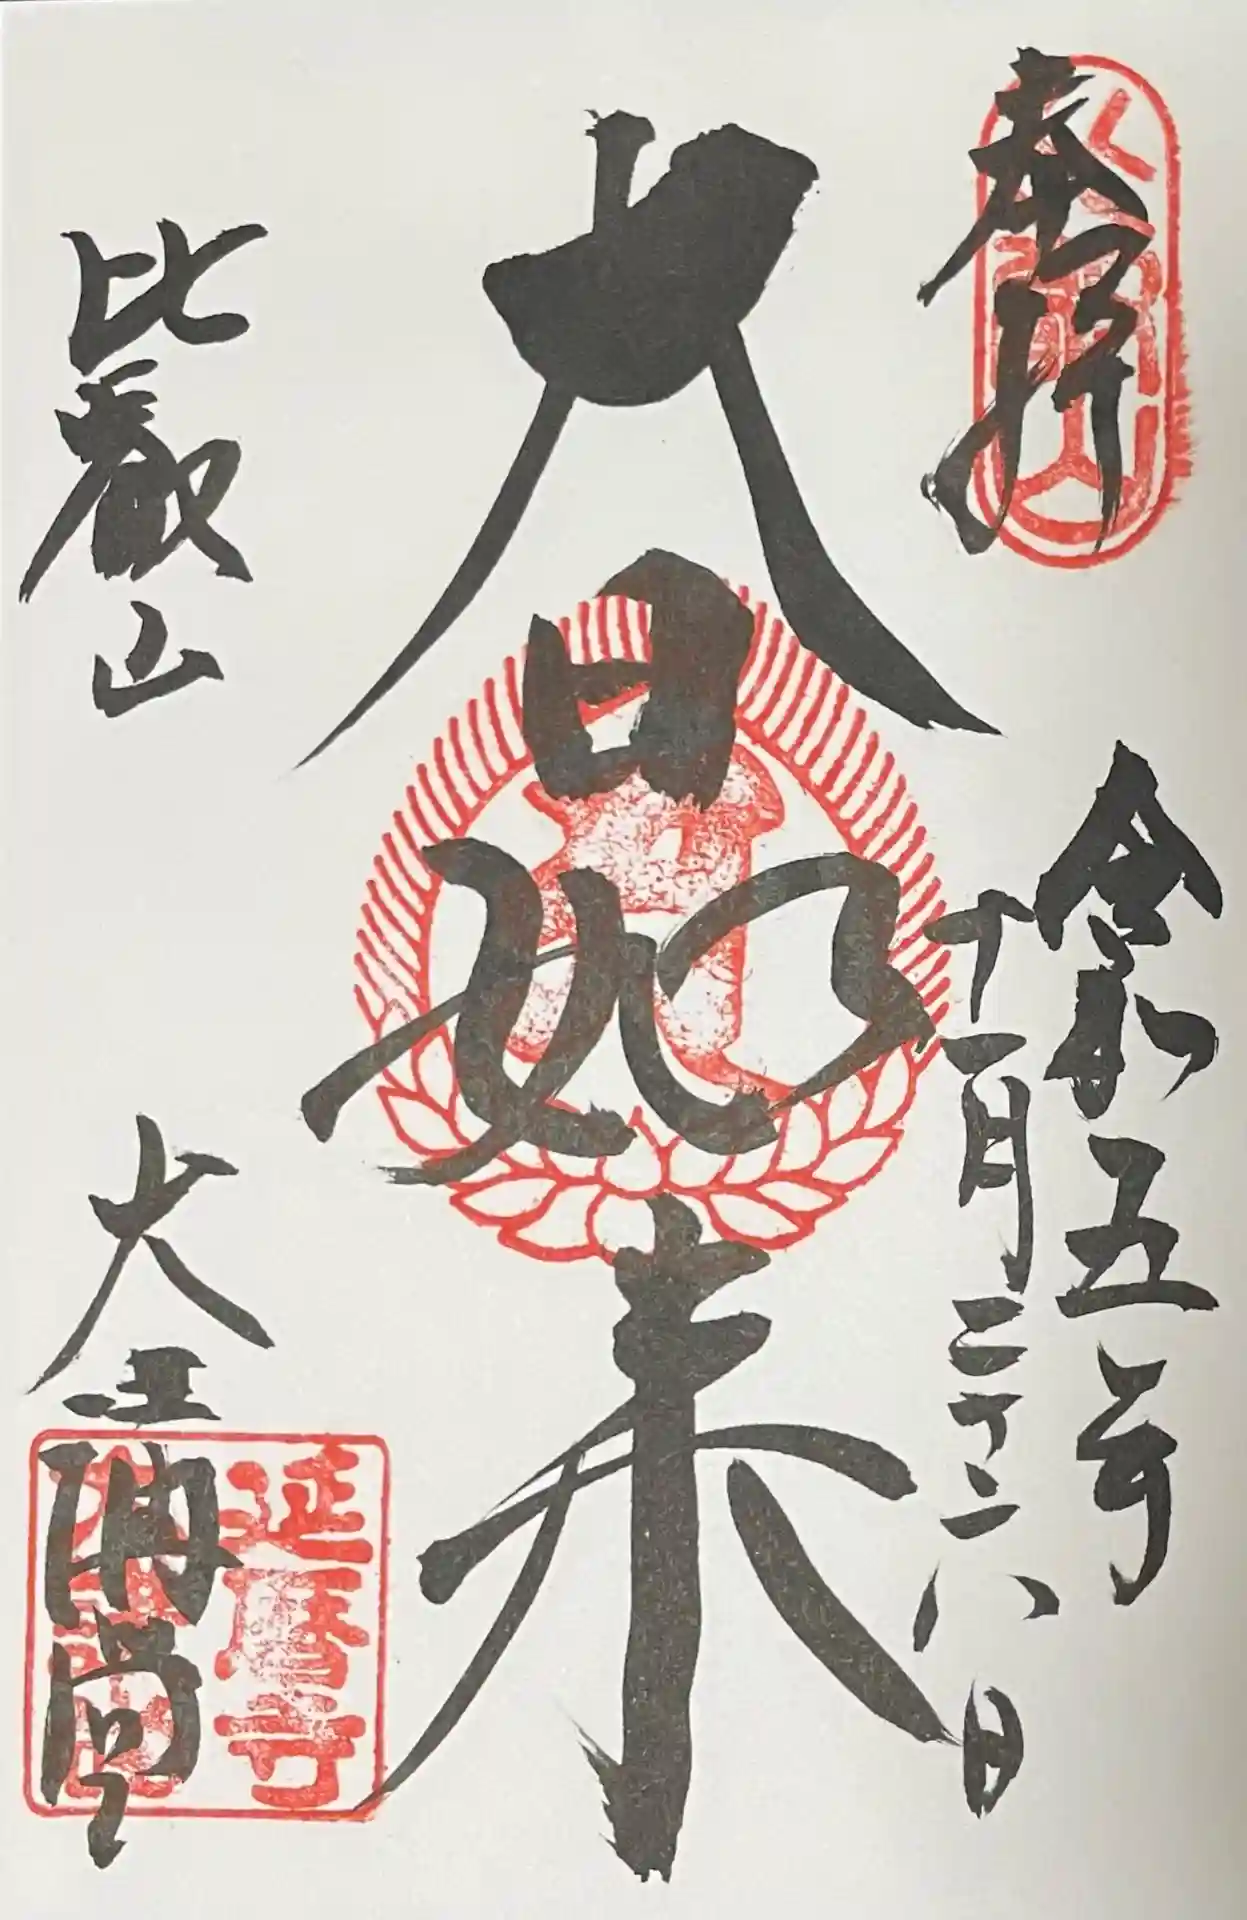 奉拝
令和五年
十一月二十六日
大日如来
比叡山
大講堂
延暦寺